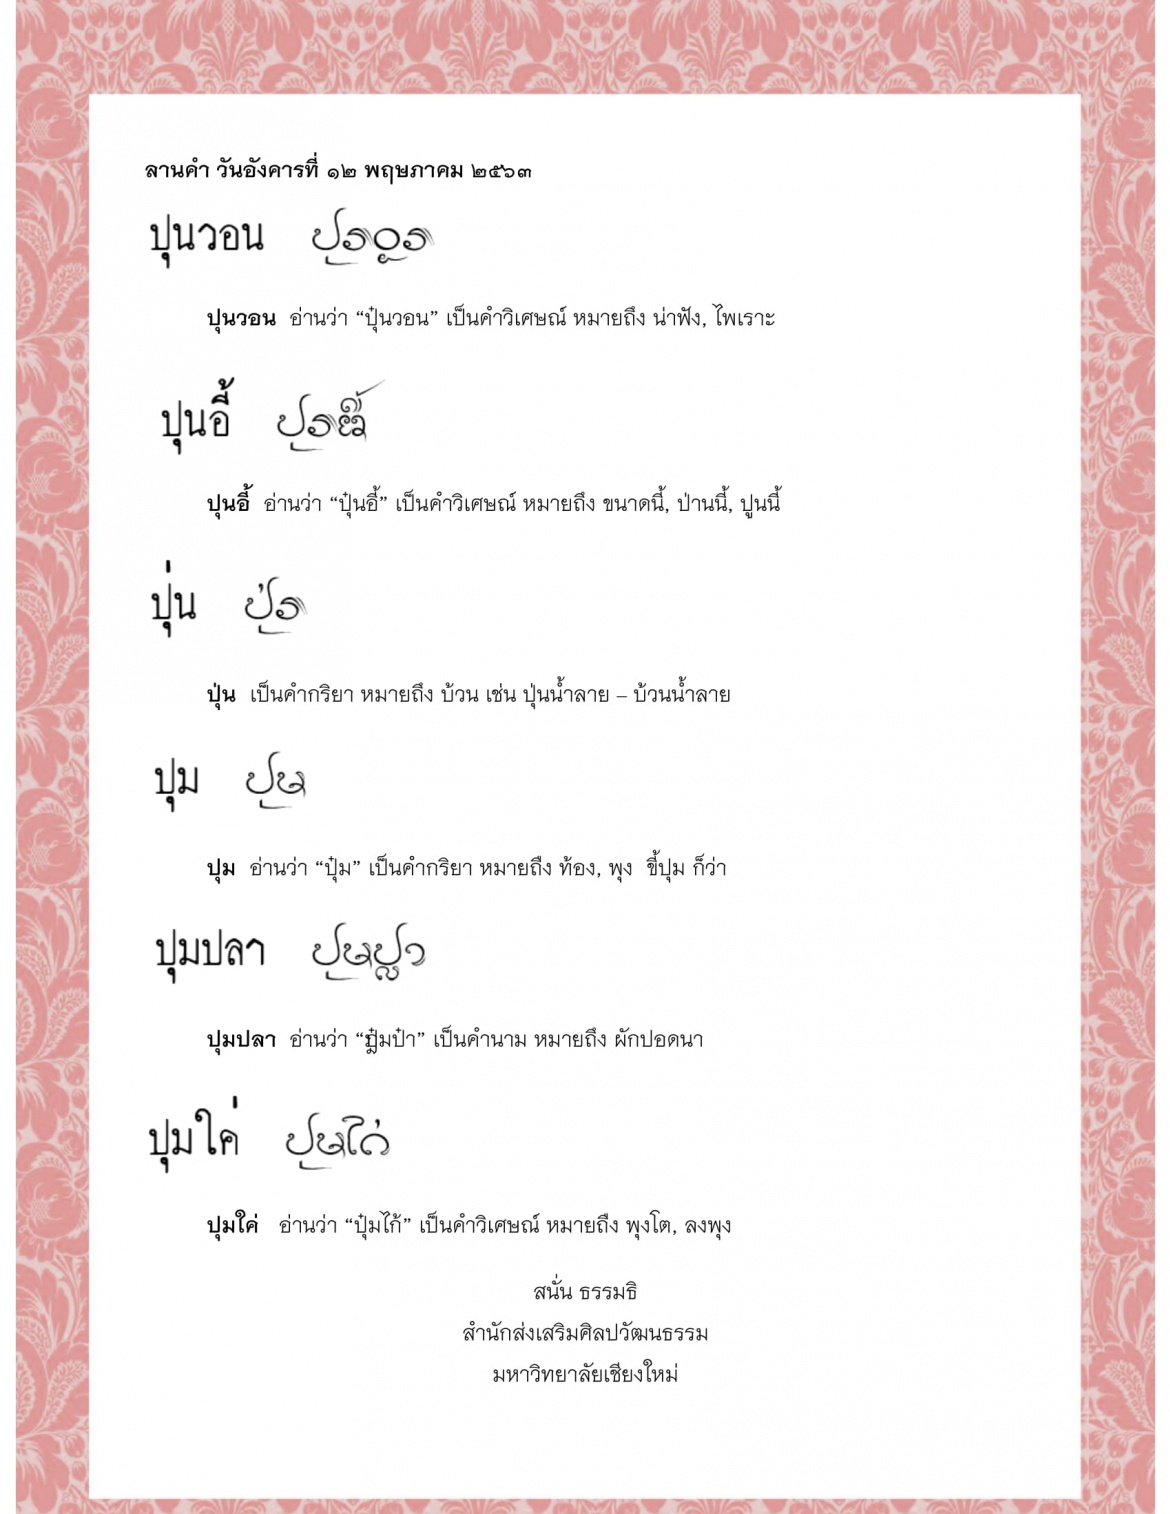 ลานคำ วันอังคารที่ ๑๒ พฤษภาคม ๒๕๖๓
ปุนวอน
ปุนวอน อ่านว่า “ปุ๋นวอน” เป็นคำวิเศษณ์ หมายถึง น่าฟัง, ไพเราะ
ปุนอี้
ปุนอี้ อ่านว่า “ปุ๋นอี้” เป็นคำวิเศษณ์ หมายถึง ขนาดนี้, ป่านนี้, ปูนนี้
ปุ่น
ปุ่น เป็นคำกริยา หมายถึง บ้วน เช่น ปุ่นน้ำลาย – บ้วนน้ำลาย
ปุม
ปุม อ่านว่า “ปุ๋ม” เป็นคำกริยา หมายถึง ท้อง, พุง ขี้ปุม ก็ว่า
ปุมปลา
ปุมปลา อ่านว่า “ปุ๋มป๋า” เป็นคำนาม หมายถึง ผักปอดนา
ปุมใค่
ปุมใค่ อ่านว่า “ปุ๋มไก้” เป็นคำวิเศษณ์ หมายถึง พุงโต, ลงพุง
สนั่น ธรรมธิ
สำนักส่งเสริมศิลปวัฒนธรรม
มหาวิทยาลัยเชียงใหม่